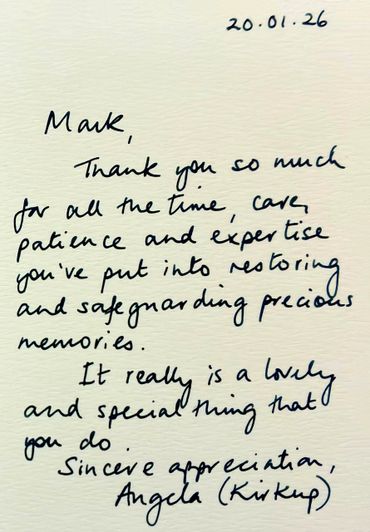 20.01.26
Mark,
Thank you so much
for all the time, care,
patience and expertise
you've put into restoring
and safeguarding precious
memories.
It really is a lovely
and special thing that
you do.
Sincere appreciation,
Angela (Kirkup)